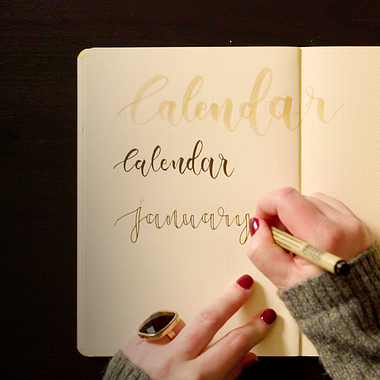 Calendar
Calendar
january